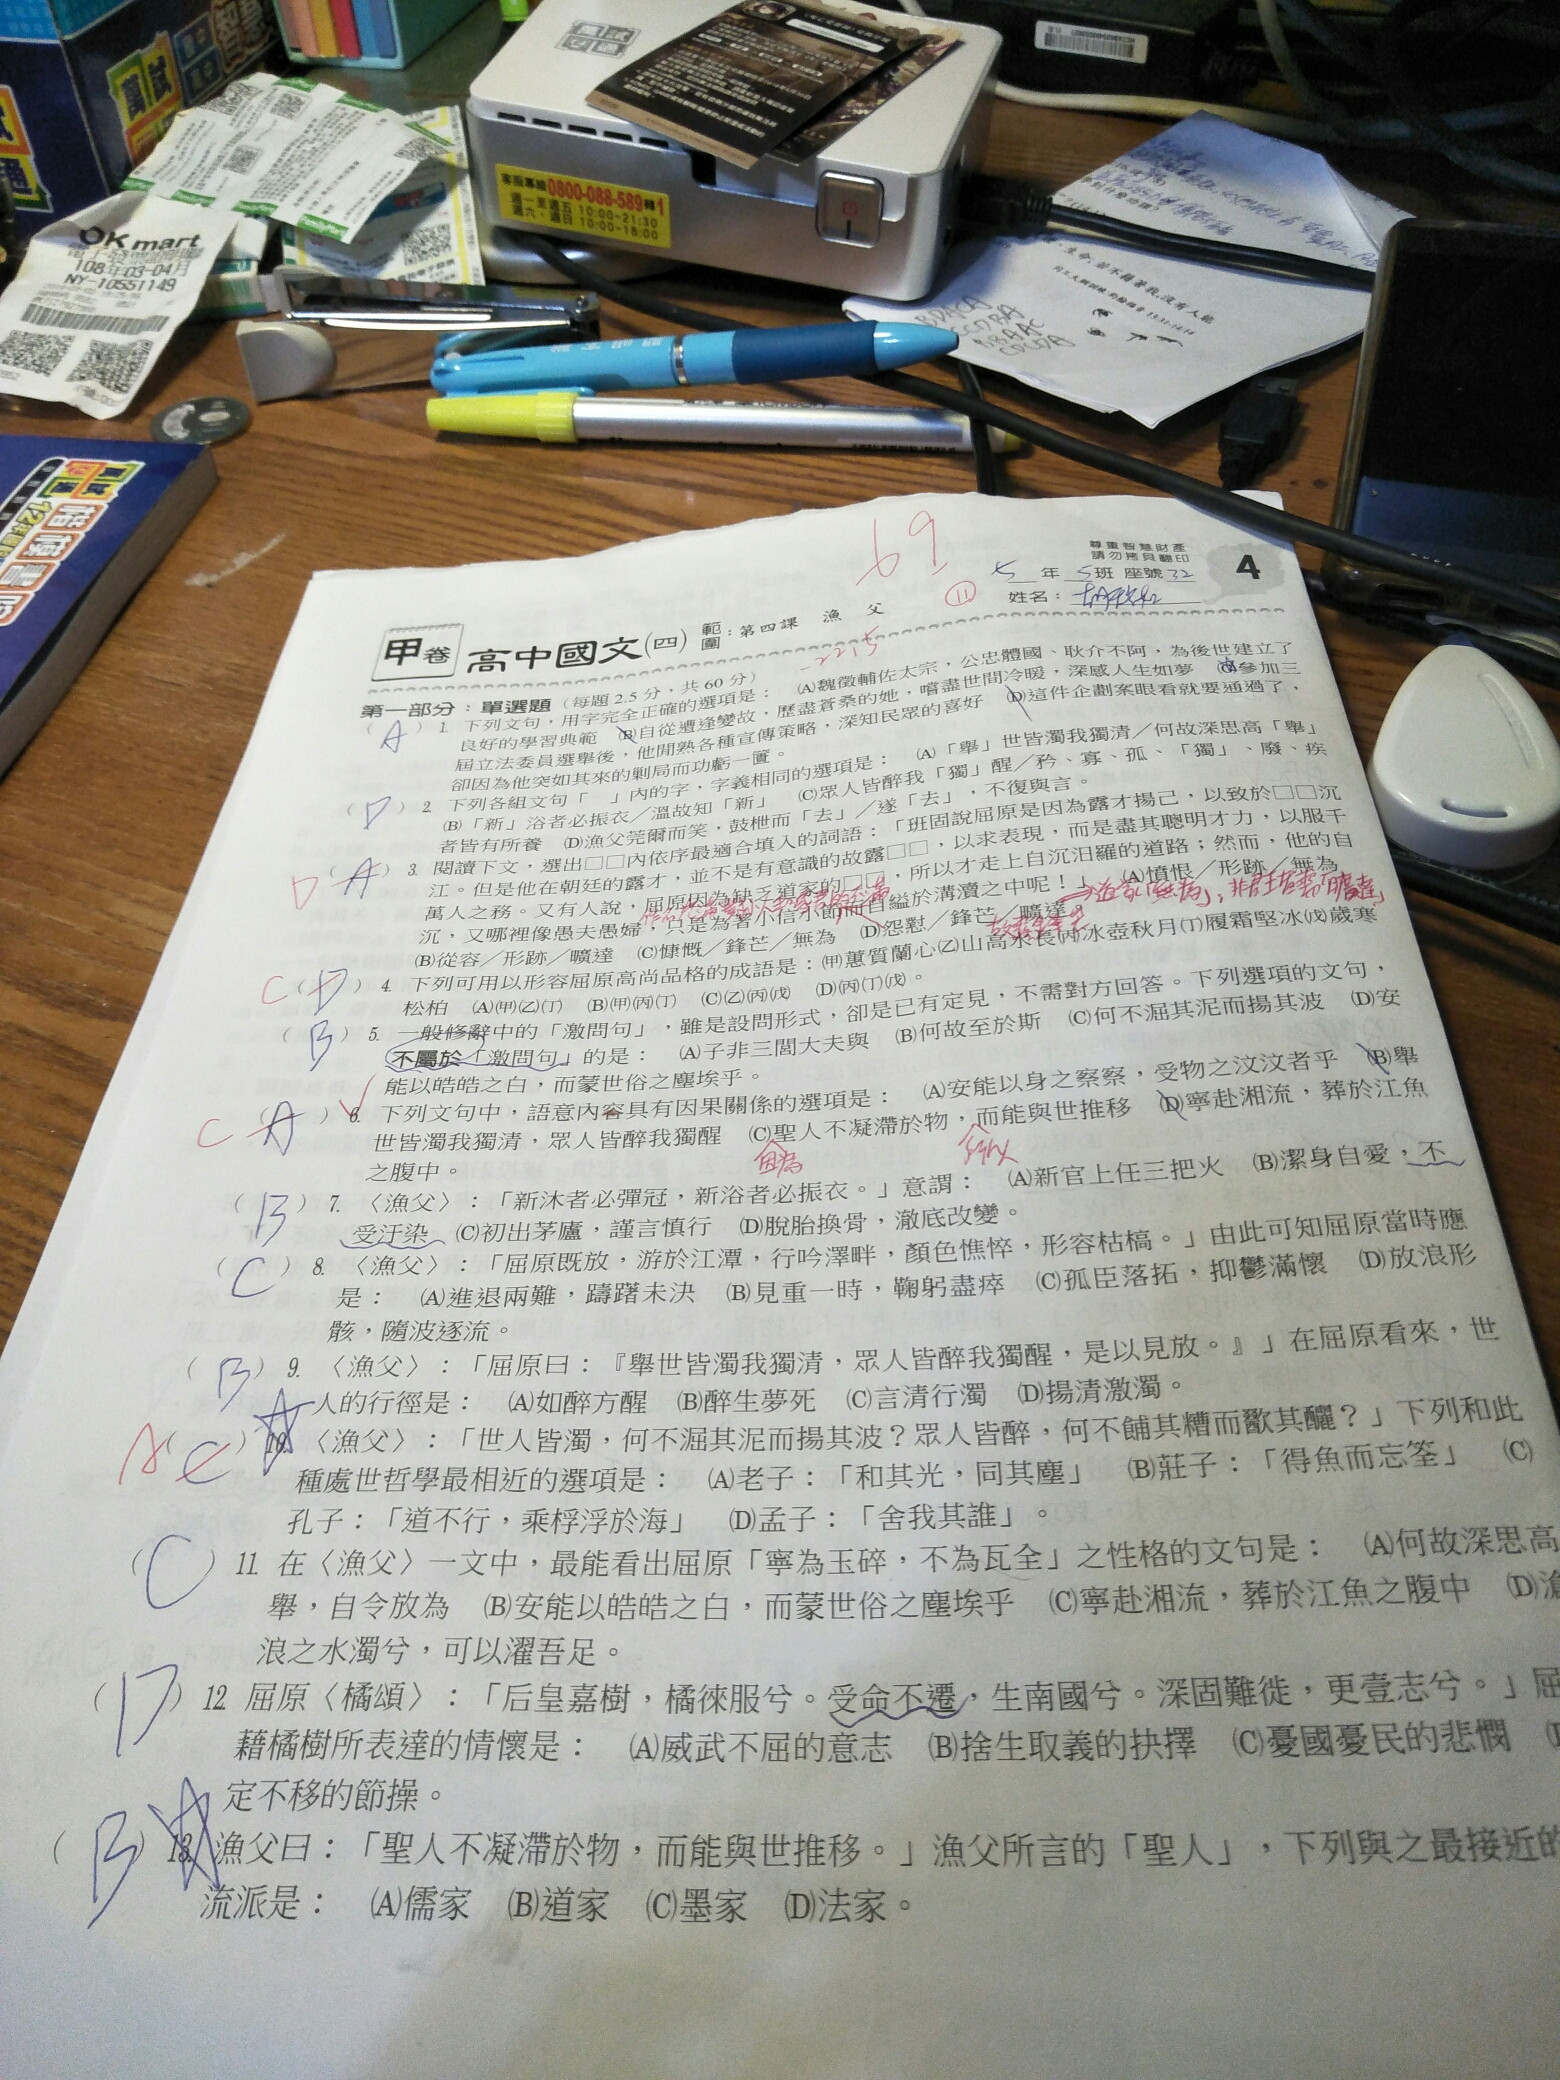 OK mart
108年03-04月
NY-10551149
客服專線0800-088-589轉1
週一至週五 10:00~21:30
週六、週日 10:00~18:00
69
尊重智慧財產
請勿拷貝翻印
4
5 年 5 班 座號 32
姓名：
甲卷 高中國文(四) 範圍：第四課 漁 父
11
-22.5
第一部分：單選題（每題 2.5 分，共 60 分）
(A) 1. 下列文句，用字完全正確的選項是： (A)魏徵輔佐太宗，公忠體國、耿介不阿，為後世建立了
良好的學習典範 (B)自從遭逢變故，歷盡蒼桑的她，嚐盡世間冷暖，深感人生如夢 (C)參加三
屆立法委員選舉後，他閒熟各種宣傳策略，深知民眾的喜好 (D)這件企劃案眼看就要通過了，
卻因為他突如其來的剿局而功虧一簣。
(D) 2. 下列各組文句「 」內的字，字義相同的選項是： (A)「舉」世皆濁我獨清／何故深思高「舉」
(B)「新」浴者必振衣／溫故知「新」 (C)眾人皆醉我「獨」醒／矜、寡、孤、「獨」、廢、疾
者皆有所養 (D)漁父莞爾而笑，鼓枻而「去」／遂「去」，不復與言。
D (A) 3. 閱讀下文，選出□□內依序最適合填入的詞語：「班固說屈原是因為露才揚己，以致於□□沉
江。但是他在朝廷的露才，並不是有意識的故露□□，以求表現，而是盡其聰明才力，以服千
萬人之務。又有人說，屈原因為缺乏道家的□□，所以才走上自沉汨羅的道路；然而，他的自
沉，又哪裡像愚夫愚婦，只是為著小信小節而自縊於溝瀆之中呢！」 (A)憤恨／形跡／無為
(B)從容／形跡／曠達 (C)慷慨／鋒芒／無為 (D)怨懟／鋒芒／曠達
C (D) 4. 下列可用以形容屈原高尚品格的成語是：(甲)蕙質蘭心(乙)山高水長(丙)冰壺秋月(丁)履霜堅冰(戊)歲寒
松柏 (A)(甲)(乙)(丁) (B)(甲)(丙)(丁) (C)(乙)(丙)(戊) (D)(丙)(丁)(戊)。
(B) 5. 一般修辭中的「激問句」，雖是設問形式，卻是已有定見，不需對方回答。下列選項的文句，
不屬於「激問句」的是： (A)子非三閭大夫與 (B)何故至於斯 (C)何不淈其泥而揚其波 (D)安
能以皓皓之白，而蒙世俗之塵埃乎。
C (A) 6. 下列文句中，語意內容具有因果關係的選項是： (A)安能以身之察察，受物之汶汶者乎 (B)舉
世皆濁我獨清，眾人皆醉我獨醒 (C)聖人不凝滯於物，而能與世推移 (D)寧赴湘流，葬於江魚
之腹中。
因為 所以
(B) 7. 〈漁父〉：「新沐者必彈冠，新浴者必振衣。」意謂： (A)新官上任三把火 (B)潔身自愛，不
受汙染 (C)初出茅廬，謹言慎行 (D)脫胎換骨，澈底改變。
(C) 8. 〈漁父〉：「屈原既放，游於江潭，行吟澤畔，顏色憔悴，形容枯槁。」由此可知屈原當時應
是： (A)進退兩難，躊躇未決 (B)見重一時，鞠躬盡瘁 (C)孤臣落拓，抑鬱滿懷 (D)放浪形
骸，隨波逐流。
(B) 9. 〈漁父〉：「屈原曰：『舉世皆濁我獨清，眾人皆醉我獨醒，是以見放。』」在屈原看來，世
人的行徑是： (A)如醉方醒 (B)醉生夢死 (C)言清行濁 (D)揚清激濁。
A (C) 10. 〈漁父〉：「世人皆濁，何不淈其泥而揚其波？眾人皆醉，何不餔其糟而歠其釃？」下列和此
種處世哲學最相近的選項是： (A)老子：「和其光，同其塵」 (B)莊子：「得魚而忘筌」 (C)
孔子：「道不行，乘桴浮於海」 (D)孟子：「舍我其誰」。
(C) 11. 在〈漁父〉一文中，最能看出屈原「寧為玉碎，不為瓦全」之性格的文句是： (A)何故深思高
舉，自令放為 (B)安能以皓皓之白，而蒙世俗之塵埃乎 (C)寧赴湘流，葬於江魚之腹中 (D)滄
浪之水濁兮，可以濯吾足。
(D) 12. 屈原〈橘頌〉：「后皇嘉樹，橘徠服兮。受命不遷，生南國兮。深固難徙，更壹志兮。」屈
藉橘樹所表達的情懷是： (A)威武不屈的意志 (B)捨生取義的抉擇 (C)憂國憂民的悲憫
定不移的節操。
(B) 13. 漁父曰：「聖人不凝滯於物，而能與世推移。」漁父所言的「聖人」，下列與之最接近的
流派是： (A)儒家 (B)道家 (C)墨家 (D)法家。